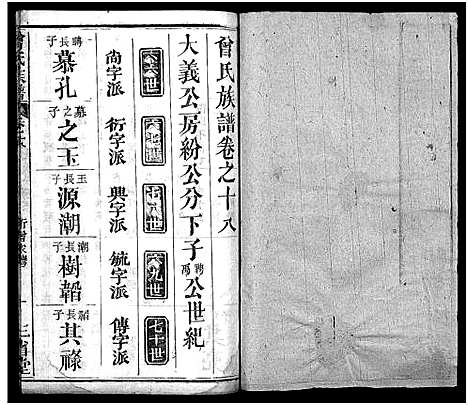 曾氏族譜卷之十八
大義公房紛公分下子騁馮公世紀
六六世 六七世 六八世 六九世 七十世
尚字派 衍字派 興字派 毓字派 傳字派
騁長子 慕孔 慕之子 之玉 玉長子 源潮 潮長子 樹韜 韜長子 其祿
曾氏族譜
三省堂